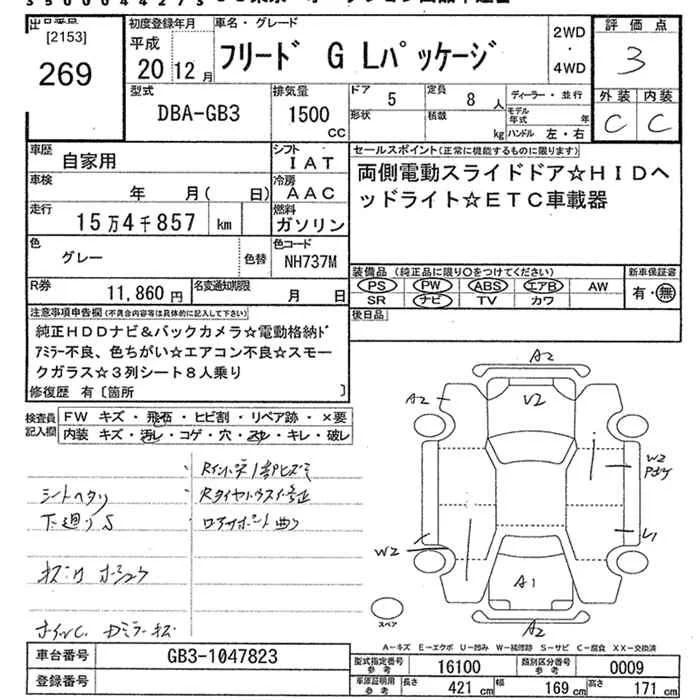 [2153]
269
初度登録年月
平成
20 12月
車名・グレード
フリード G Lパッケージ
2WD
・
4WD
評価点
3
外装 内装
C C
型式
DBA-GB3
排気量
1500
CC
ドア
5
定員
8 人
形状
積載
kg
ディーラー・並行
モデル年式 年
ハンドル 左・右
車歴
自家用
シフト
IAT
車検
年 月( 日)
冷房
AAC
走行
15万4千857 km
燃料
ガソリン
色
グレー
色替
色コード
NH737M
R券
11,860円
名変通知期限
月 日
セールスポイント(正常に機能するものに限ります)
両側電動スライドドア☆HIDヘ
ッドライト☆ETC車載器
装備品 (純正品に限り○をつけてください)
PS PW ABS エアB AW
SR ナビ TV カワ
新車保証書
有・無
後日品
注意事項申告欄(不具合内容等は具体的に記入して下さい)
純正HDDナビ&バックカメラ☆電動格納ド
アミラー不良、色ちがい☆エアコン不良☆スモー
クガラス☆3列シート8人乗り
修復歴 有〔箇所 〕
検査員
記入欄
FW キズ・飛石・ヒビ割・リペア跡・×要
内装 キズ・汚レ・コゲ・穴・スレ・キレ・破レ
シートヘタリ
下廻りS
A2
A2
V2
W2
U1
W2
A1
A2
スペア
A-キズ E-エクボ U-凹み W-補修跡 S-サビ C-腐食 XX-交換済
車台番号
GB3-1047823
登録番号
型式指定番号
参考
16100
類別区分番号
参考
0009
車庫証明用
参考
長さ 421 cm
幅 169 cm
高さ 171 cm